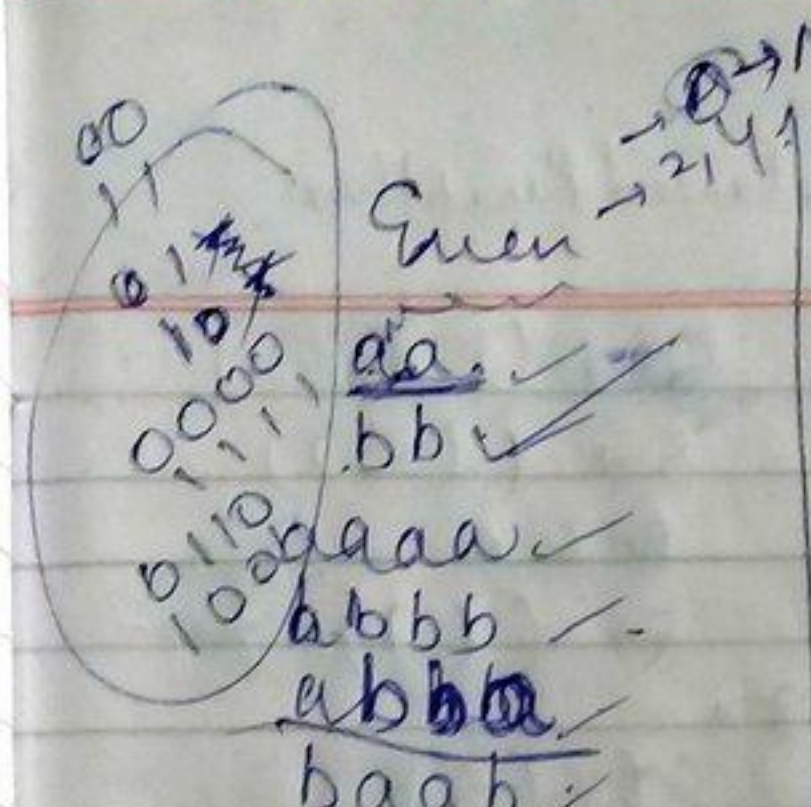 00
11
01
10
0000
1111
0110
1001
→ 0 → 1
→ 2, 4
Even
aa.
bb
aaaa
bbbb
abba
baab